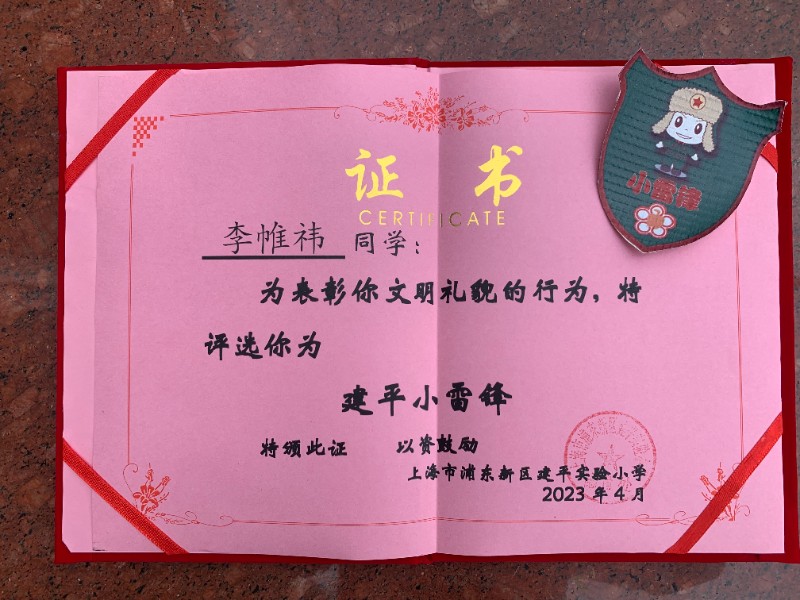 证 书
CERTIFICATE
小雷锋
李帷祎 同学：
为表彰你文明礼貌的行为，特
评选你为
建平小雷锋
特颁此证 以资鼓励
上海市浦东新区建平实验小学
2023 年 4 月